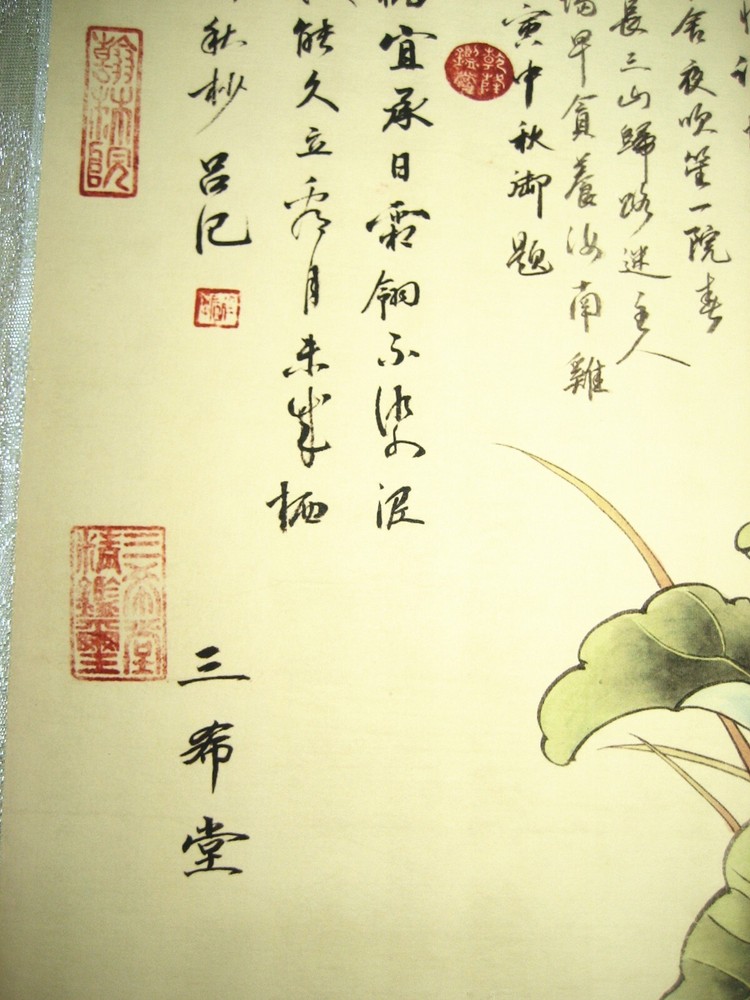 舍夜吹笙一院春
長三山歸路迷主人
早貪養汝南雞
寅中秋御題
乾隆鑑賞
宜承日霜翎不染泥
能久立看月未成栖
秋杪 呂紀
三希堂
翰林院
三希堂精鑑璽